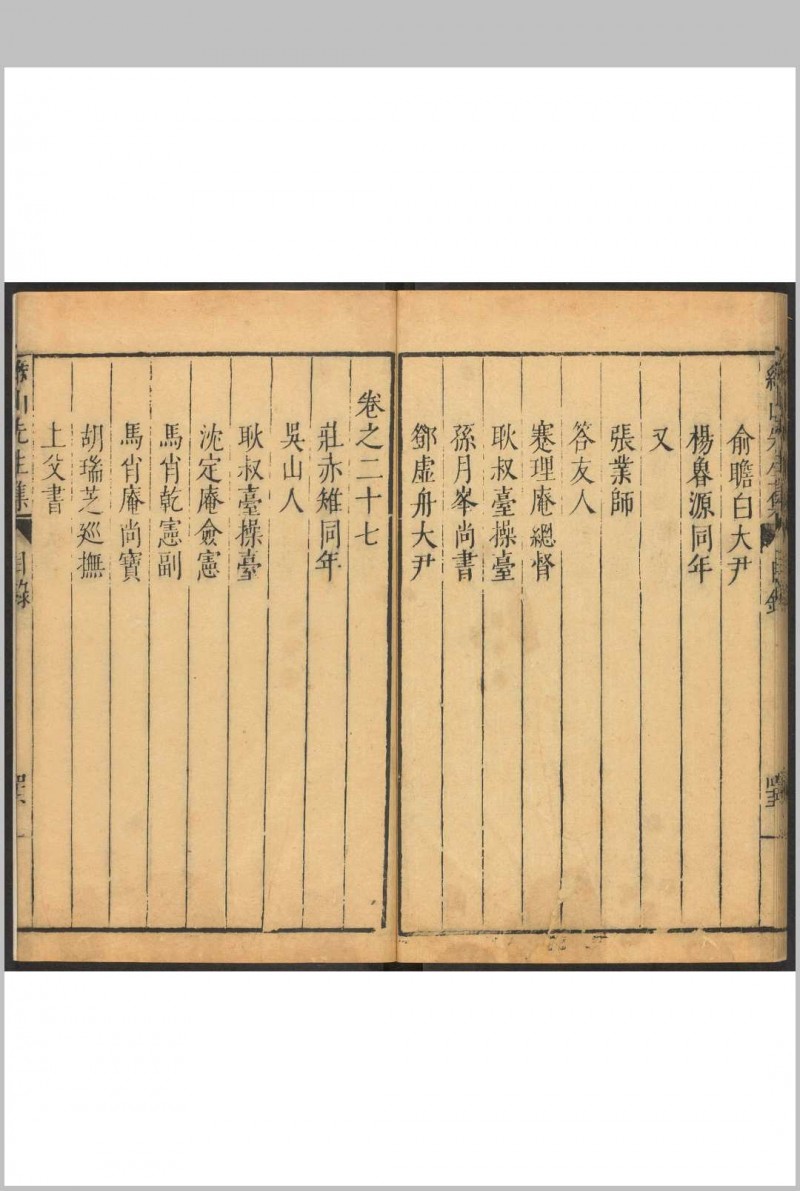 俞瞻白大尹
楊魯源同年
又
張業師
答友人
蹇理庵總督
耿叔臺操臺
孫月峯尚書
鄧虛舟大尹
卷之二十七
莊赤雉同年
吳山人
耿叔臺操臺
沈定庵僉憲
馬肖乾憲副
馬肖庵尚寶
胡瑞芝廵撫
上父書
山先生集 目錄